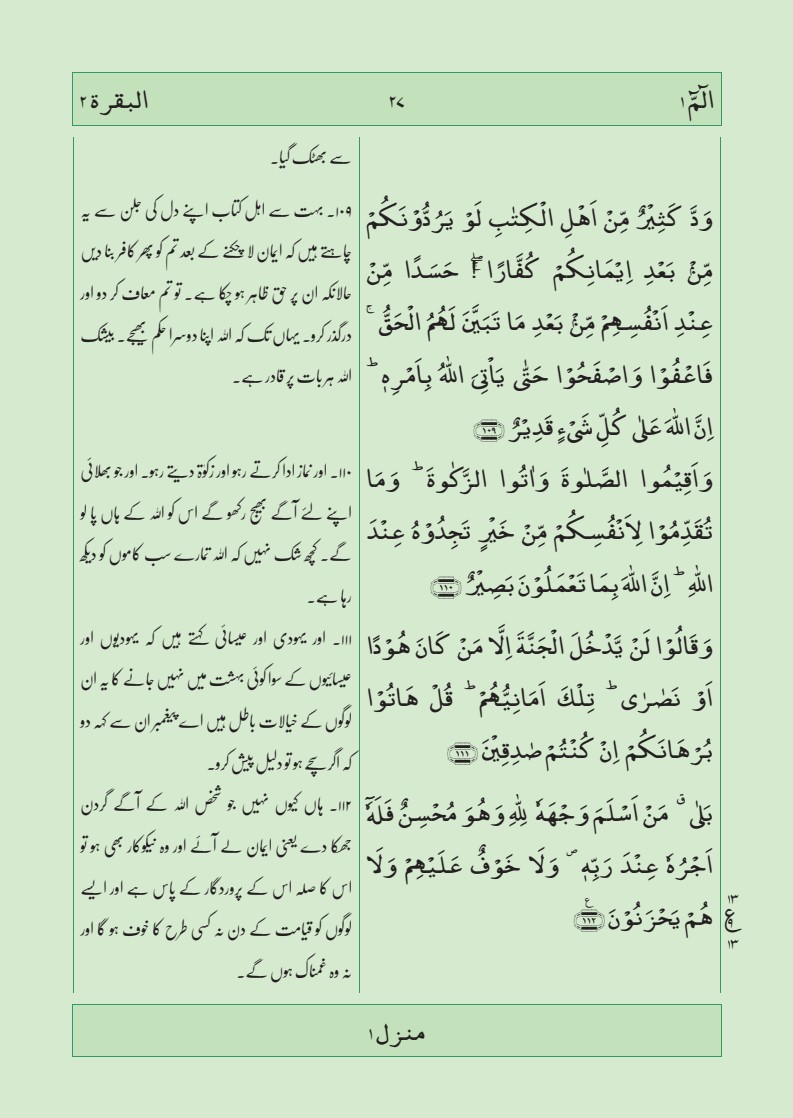 الٓمّٓ ۱
۲۷
البقرة ۲
وَدَّ کَثِیۡرٌ مِّنۡ اَہۡلِ الۡکِتٰبِ لَوۡ یَرُدُّوۡنَکُمۡ
مِّنۡۢ بَعۡدِ اِیۡمَانِکُمۡ کُفَّارًا ۚۖ حَسَدًا مِّنۡ
عِنۡدِ اَنۡفُسِہِمۡ مِّنۡۢ بَعۡدِ مَا تَبَیَّنَ لَہُمُ الۡحَقُّ ۚ
فَاعۡفُوۡا وَاصۡفَحُوۡا حَتّٰی یَاۡتِیَ اللّٰہُ بِاَمۡرِہٖ ؕ
اِنَّ اللّٰہَ عَلٰی کُلِّ شَیۡءٍ قَدِیۡرٌ ﴿۱۰۹﴾
وَاَقِیۡمُوا الصَّلٰوۃَ وَاٰتُوا الزَّکٰوۃَ ؕ وَمَا
تُقَدِّمُوۡا لِاَنۡفُسِکُمۡ مِّنۡ خَیۡرٍ تَجِدُوۡہُ عِنۡدَ
اللّٰہِ ؕ اِنَّ اللّٰہَ بِمَا تَعۡمَلُوۡنَ بَصِیۡرٌ ﴿۱۱۰﴾
وَقَالُوۡا لَنۡ یَّدۡخُلَ الۡجَنَّۃَ اِلَّا مَنۡ کَانَ ہُوۡدًا
اَوۡ نَصٰرٰی ؕ تِلۡکَ اَمَانِیُّہُمۡ ؕ قُلۡ ہَاتُوۡا
بُرۡہَانَکُمۡ اِنۡ کُنۡتُمۡ صٰدِقِیۡنَ ﴿۱۱۱﴾
بَلٰی ٭ مَنۡ اَسۡلَمَ وَجۡہَہٗ لِلّٰہِ وَہُوَ مُحۡسِنٌ فَلَہٗۤ
اَجۡرُہٗ عِنۡدَ رَبِّہٖ ۪ وَلَا خَوۡفٌ عَلَیۡہِمۡ وَلَا
ہُمۡ یَحۡزَنُوۡنَ ﴿۱۱۲﴾
۱۳
ع
۱۳
سے بھٹک گیا۔
۱۰۹۔ بہت سے اہل کتاب اپنے دل کی جلن سے یہ
چاہتے ہیں کہ ایمان لا چکنے کے بعد تم کو پھر کافر بنا دیں
حالانکہ ان پر حق ظاہر ہو چکا ہے۔ تو تم معاف کر دو اور
درگذر کرو۔ یہاں تک کہ اللہ اپنا دوسرا حکم بھیجے۔ بیشک
اللہ ہر بات پر قادر ہے۔
۱۱۰۔ اور نماز ادا کرتے رہو اور زکوٰۃ دیتے رہو۔ اور جو بھلائی
اپنے لئے آگے بھیج رکھو گے اس کو اللہ کے ہاں پا لو
گے۔ کچھ شک نہیں کہ اللہ تمہارے سب کاموں کو دیکھ
رہا ہے۔
۱۱۱۔ اور یہودی اور عیسائی کہتے ہیں کہ یہودیوں اور
عیسائیوں کے سوا کوئی بہشت میں نہیں جانے کا یہ ان
لوگوں کے خیالات باطل ہیں اے پیغمبر ان سے کہہ دو
کہ اگر سچے ہو تو دلیل پیش کرو۔
۱۱۲۔ ہاں کیوں نہیں جو شخص اللہ کے آگے گردن
جھکا دے یعنی ایمان لے آئے اور وہ نیکوکار بھی ہو تو
اس کا صلہ اس کے پروردگار کے پاس ہے اور ایسے
لوگوں کو قیامت کے دن نہ کسی طرح کا خوف ہو گا اور
نہ وہ غمناک ہوں گے۔
منزل ۱